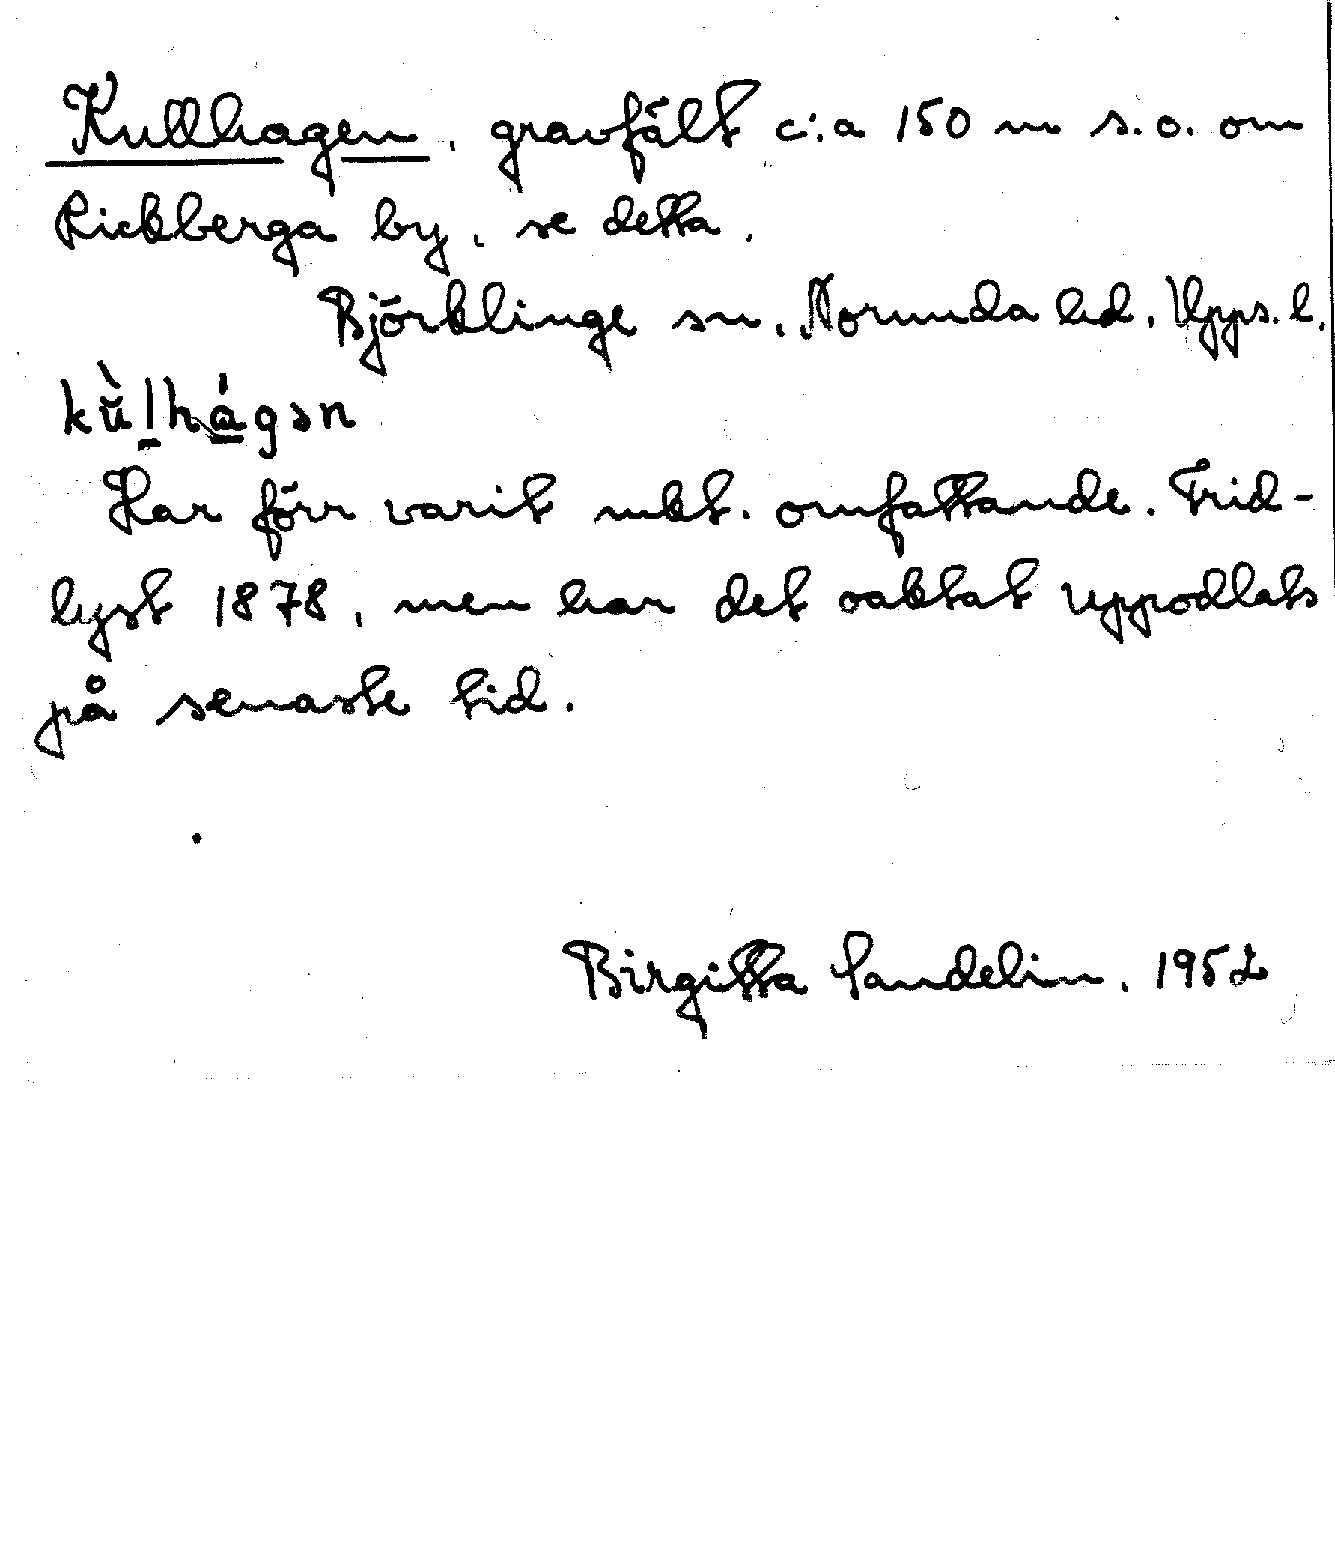 Kullhagen, gravfält c:a 150 m s.o. om
Rickberga by, se detta.
Björklinge sn, Norunda hd, Upps. l.
kùlhágən
Har förr varit mkt. omfattande. Frid-
lyst 1878, men har det oaktat uppodlats
på senaste tid.
Birgitta Sandelin, 1952